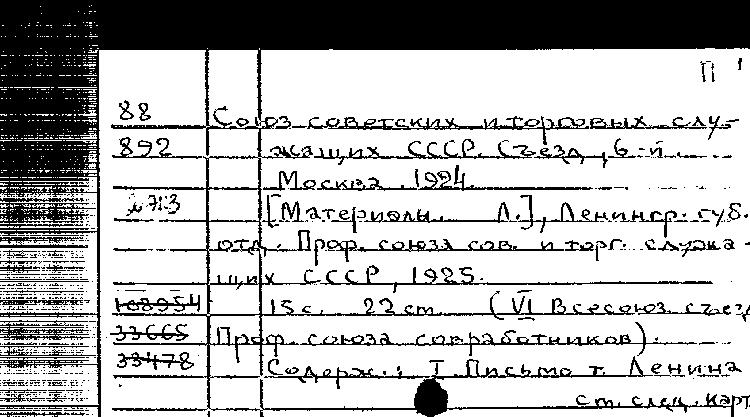 П
88 Союз советских и торговых слу-
892 жащих СССР. Съезд, 6-й.
Москва. 1924.
[Материалы. Л.], Ленингр. губ.
отд. Проф. союза сов. и торг. служа-
щих СССР, 1925.
168954 15 с. 22 cm. (VI Всесоюз. съезд
33665 Проф. союза совработников).
33478 Содерж.: I. Письмо т. Ленина
см. след. карт